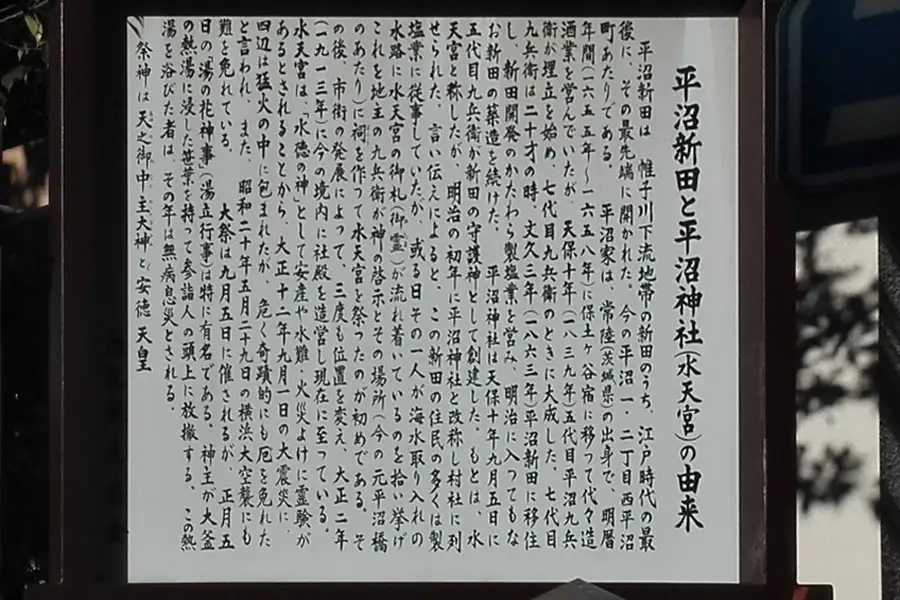 平沼新田と平沼神社(水天宮)の由来
平沼新田は、帷子川下流地帯の新田のうち、江戸時代の最
後に、その最先端に開かれた。今の平沼一・二丁目西平沼
町あたりである。平沼家は、常陸(茨城県)の出身で、明暦
年間(一六五五年～一六五八年)に保土ヶ谷宿に移って代々造
酒業を営んでいたが、天保十年(一八三九年)五代目平沼九兵
衛が埋立を始め、七代目九兵衛のときに大成した。七代目
九兵衛は二十才の時、文久三年(一八六三年)平沼新田に移住
し、新田開発のかたわら製塩業を営み、明治に入ってもな
お新田の築造を続けた。平沼神社は天保十年九月五日に
五代目九兵衛が新田の守護神として創建した。もとは、水
天宮と称したが、明治の初年に平沼神社と改称し村社に列
せられた。言い伝えによると、この新田の住民の多くは製
塩業に従事していたが、或る日その一人が海水取り入れの
水路に水天宮の御札(御霊)が流れ着いているのを拾い挙げ
これを地主の九兵衛が神の啓示とその場所(今の元平沼橋
のあたり)に祠を作って水天宮を祭ったのが初めである。そ
の後、市街の発展によって、三度も位置を変え、大正二年
(一九一三年)に今の境内に社殿を造営し現在に至っている。
水天宮は、「水徳の神」として安産や水難・火災よけに霊験が
あるとされることから、大正十二年九月一日の大震災に、
四辺は猛火の中に包まれたが、危く奇蹟的にも厄を免れた
と言われ、また、昭和二十年五月二十九日の横浜大空襲にも
難を免れている。大祭は九月五日に催されるが、正月五
日の「湯の花神事」(湯立行事)は特に有名である。神主が大釜
の熱湯に浸した笹葉を持って参詣人の頭上に放撒する。この熱
湯を浴びた者は、その年は無病息災とされる。
祭神は天之御中主大神と安徳天皇